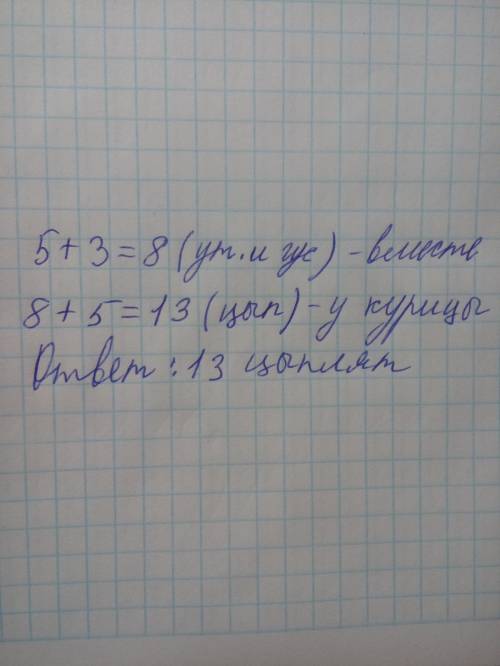 5+3=8 (ут. и гус) - вместе
8+5=13 (цып) - у курицы
Ответ: 13 цыплят